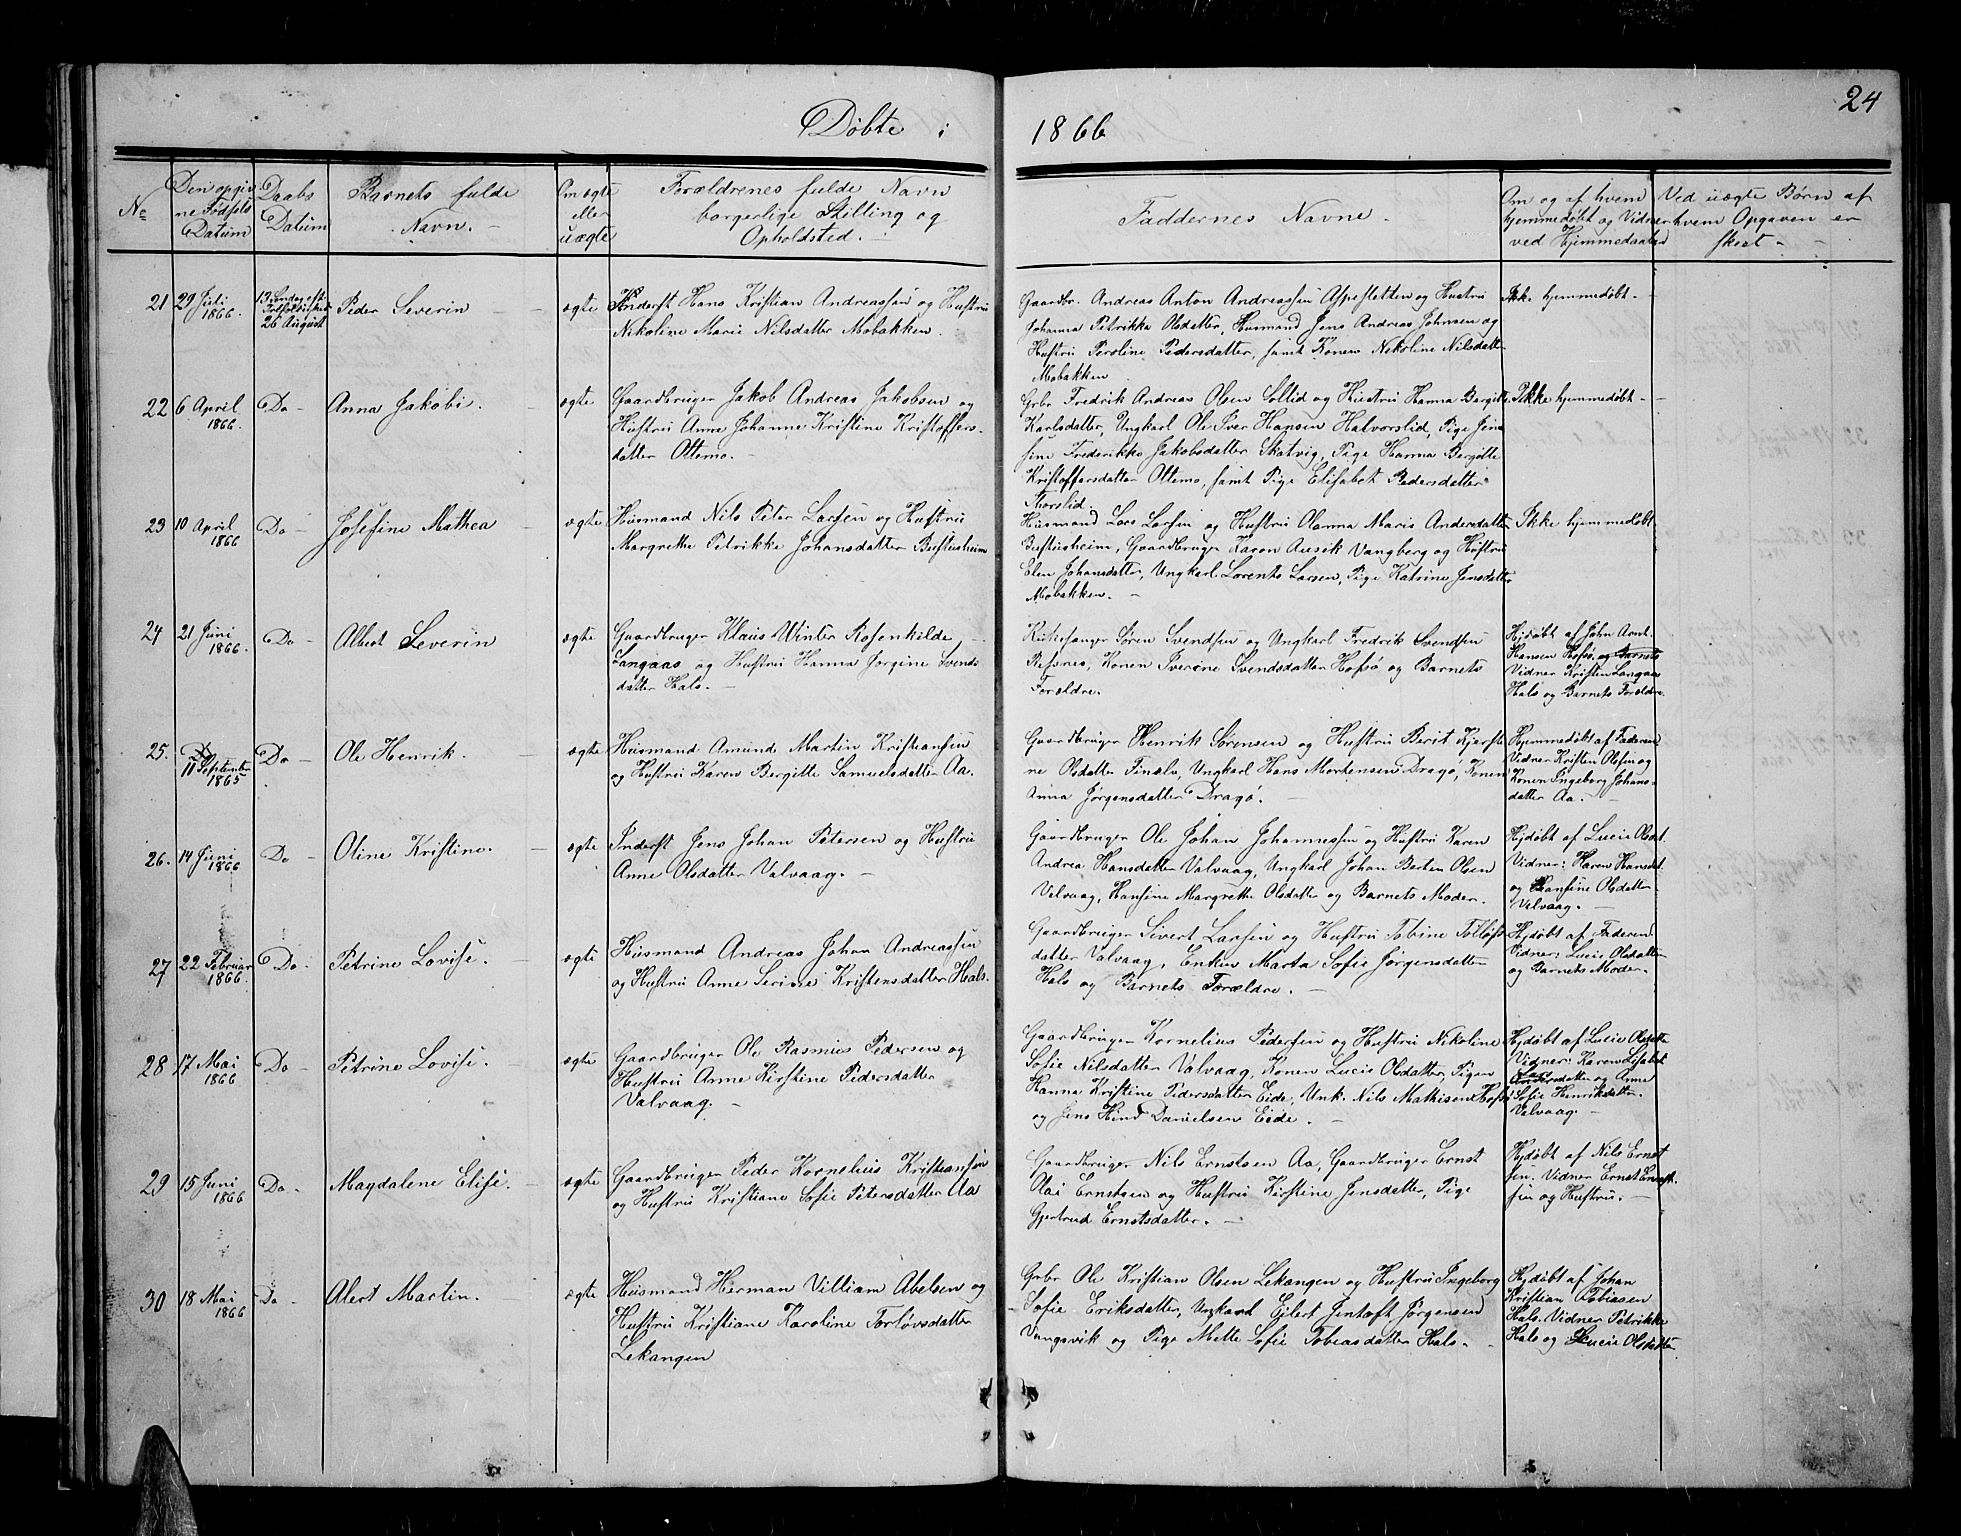 24
Døbte i 1866
No
Den opgiv
ne Fødsels
Datum
Daabs
Datum
Barnets fulde
Navn.
Om ægte
eller
uægte
Forældrenes fulde Navn
borgerlige Stilling og
Opholdsted.
Faddernes Navne.
Om og af hvem
hjemmedøbt og Vidner
ved Hjemmedaaben
Ved uægte Børn af
hvem Opgaven er
skeet
21
29 Juli
1866.
13 Søndag eft
26 August
Peder Severin
ægte
Inderst Hans Kristian Andreassen og Hustru
Nikoline Marie Nilsdatter Mobakken.
Gaardbr. Andreas Anton Andreassen Aspesletten og Hustru
Johanna Petrikka Olsdatter, Husmand Jens Andreas Johnsen og
Hustru Peroline Pedersdatter, samt Konen Nikoline Nilsdatter
Mobakken
Ikke hjemmedøbt
22
6 April
1866.
Do
Anna Jakobi.
ægte
Gaardbruger Jakob Andreas Jakobsen og
Hustru Anna Johanne Kristine Kristoffers-
datter Ottemo.
Grbr Fredrik Andreas Olsen Soltid og Hustru Hanna Bergitte
Karlsdatter, Ungkarl Ole Iver Hansen Halvorslid, Pige Jens
sine Frederikke Jakobsdatter Skatvig, Pige Hanna Bergitte
Kristoffersdatter Ottemo, samt Pige Elisabet Pedersdatter
Storslid.
Ikke hjemmedøbt
23
10 April
1866
Do
Josefine Mathea
ægte
Husmand Nils Peter Larsen og Hustru
Margrethe Petrikke Johansdatter Buftusheim
Husmand Lars Larsen og Hustru Olanna Maria Andersdatter
Buftusheim, Gaardbruger Karon Ausik Vangberg og Hustru
Elen Johansdatter, Ungkarl Lorents Larsen, Pige Katrine Jensdatter
Mobakken.
Ikke hjemmedøbt
24
21 Juni
1866.
Do
Albert Severin
ægte
Gaardbruger Klaus Winter Rosenkilde
Langaas og Hustru Hanna Jørgine Svends
datter Hals.
Kirkesanger Søren Svendsen og Ungkarl Fredrik Svendsen
Refsnes, Konen Iverine Svendsdatter Hofsø og Barnets
Forældre.
Hjdøbt af John Arnt
Hansen Hofsø, og Barnets
Vidner Kristen Langaas
Hals og Barnets Forældre.
25.
11 September
1865
Do
Ole Henrik.
ægte
Husmand Amund Martin Kristiansen
og Hustru Karen Bergitte Samuelsdatter Aa.
Gaardbruger Henrik Sørensen og Hustru Berit Kjersti
ne Olsdatter Finælv, Ungkarl Hans Mortensen Dragø, Konen
Anna Jørgensdatter Dragø.
Hjemmedøbt af Faderen
Vidner Kristen Olsen og
Konen Ingeborg Johans-
datter Aa.
26.
14 Juni
1866
Do
Oline Kristine.
ægte
Inderst Jens Johan Petersen og Hustru
Anne Olsdatter Valvaag.
Gaardbruger Ole Johan Johannessen og Hustru Karen
Andrea Hansdatter Valvaag, Ungkarl Johan Berten Olsen
Valvaag, Hansine Margrethe Olsdatter og Barnets Moder.
Hjdøbt af Lucie Olsdat.
Vidner: Karen Hansdat
og Hansine Olsdatter
Valvaag.
27
22 Februar
1866.
Do.
Petrine Lovise.
ægte
Husmand Andreas Johan Andreassen
og Hustru Anne Serine Kristensdatter Hals.
Gaardbruger Sivert Larsen og Hustru Tobine Tollofs
datter Valvaag, Enken Marta Sofie Jørgensdatter
Hals og Barnets Forældre.
Hjdøbt af Faderen
Vidner: Lucie Olsdatter
og Barnets Moder.
28
17 Mai
1866
Do
Petrine Lovise.
ægte
Gaardbruger Ole Rasmus Pedersen og
Hustru Anne Kirstine Pedersdatter
Valvaag.
Gaardbruger Kornelius Pedersen og Hustru Nikoline
Sofie Nilsdatter Valvaag, Konen Lucie Olsdatter, Pigen
Hanna Kristine Pedersdatter Eide, Unk. Nils Mathisen Hofsø
og Jens Hind Danielsen Eide.
Hjdøbt af Lucie Olsdatter
Vidner: Karen Lisabet
Andersdatter og Anne
Sofie Henriksdatter
Valvaag.
29
15 Juni
1866
Do.
Magdalene Elise.
ægte
Gaardbruger Peder Kornelius Kristiansen
og Hustru Kristiane Sofie Petersdatter Aa
Gaardbruger Nils Ernstsen Aa, Gaardbruger Ernst
Olai Ernstsen og Hustru Kirstine Jensdatter, Pige
Gjertrud Ernstsdatter.
Hjdøbt af Nils Ernst
sen. Vidner Ernst Ernst-
sen og Hustru.
30
18 Mai
1866
Do
Alert Martin.
ægte
Husmand Herman Villiam Abelsen og
Hustru Kristiane Karoline Torlovsdatter
Lekangen
Grbr Ole Kristian Olsen Lekangen og Hustru Ingeborg
Sofie Eriksdatter, Ungkarl Eilert Jentoft Jørgensen
Vangsvik og Pige Mette Sofie Tobiasdatter Hals.
Hjdøbt af Johan
Kristian Tobiasen
Hals. Vidner Petrikke
Hals og Lucie Olsdatter